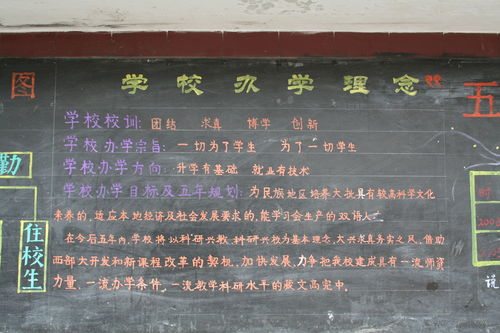 图
学校办学理念
五
学校校训: 团结 求真 博学 创新
学校办学宗旨: 一切为了学生 为了一切学生
学校办学方向: 升学有基础 就业有技术
学校办学目标及五年规划: 为民族地区培养大批具有较高科学文化
素养的,适应本地经济及社会发展要求的,能学习会生产的双语人才。
在今后五年内,学校将以科研兴教,科研兴校为基本理念,大兴求真务实之风,借助
西部大开发和新课程改革的契机,加快发展,力争把我校建成具有一流师资
力量、一流办学条件、一流教学科研水平的藏文高完中。
勤
住校生
时
2008
说